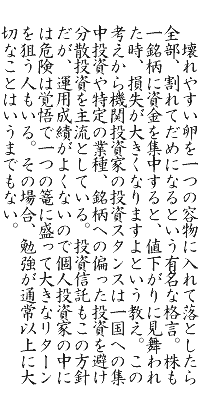 壊れやすい卵を一つの容物に入れて落としたら
全部、割れてだめになるという有名な格言。株も
一銘柄に資金を集中すると、値下がりに見舞われ
た時、損失が大きくなりますよという教え。この
考えから機関投資家の投資スタンスは一国への集
中投資や特定の業種、銘柄への偏った投資を避け
分散投資を主流としている。投資信託もこの方針
だが、運用成績がよくないので個人投資家の中に
は危険は覚悟で一つの篭に盛って大きなリターン
を狙う人もいる。その場合、勉強が通常以上に大
切なことはいうまでもない。